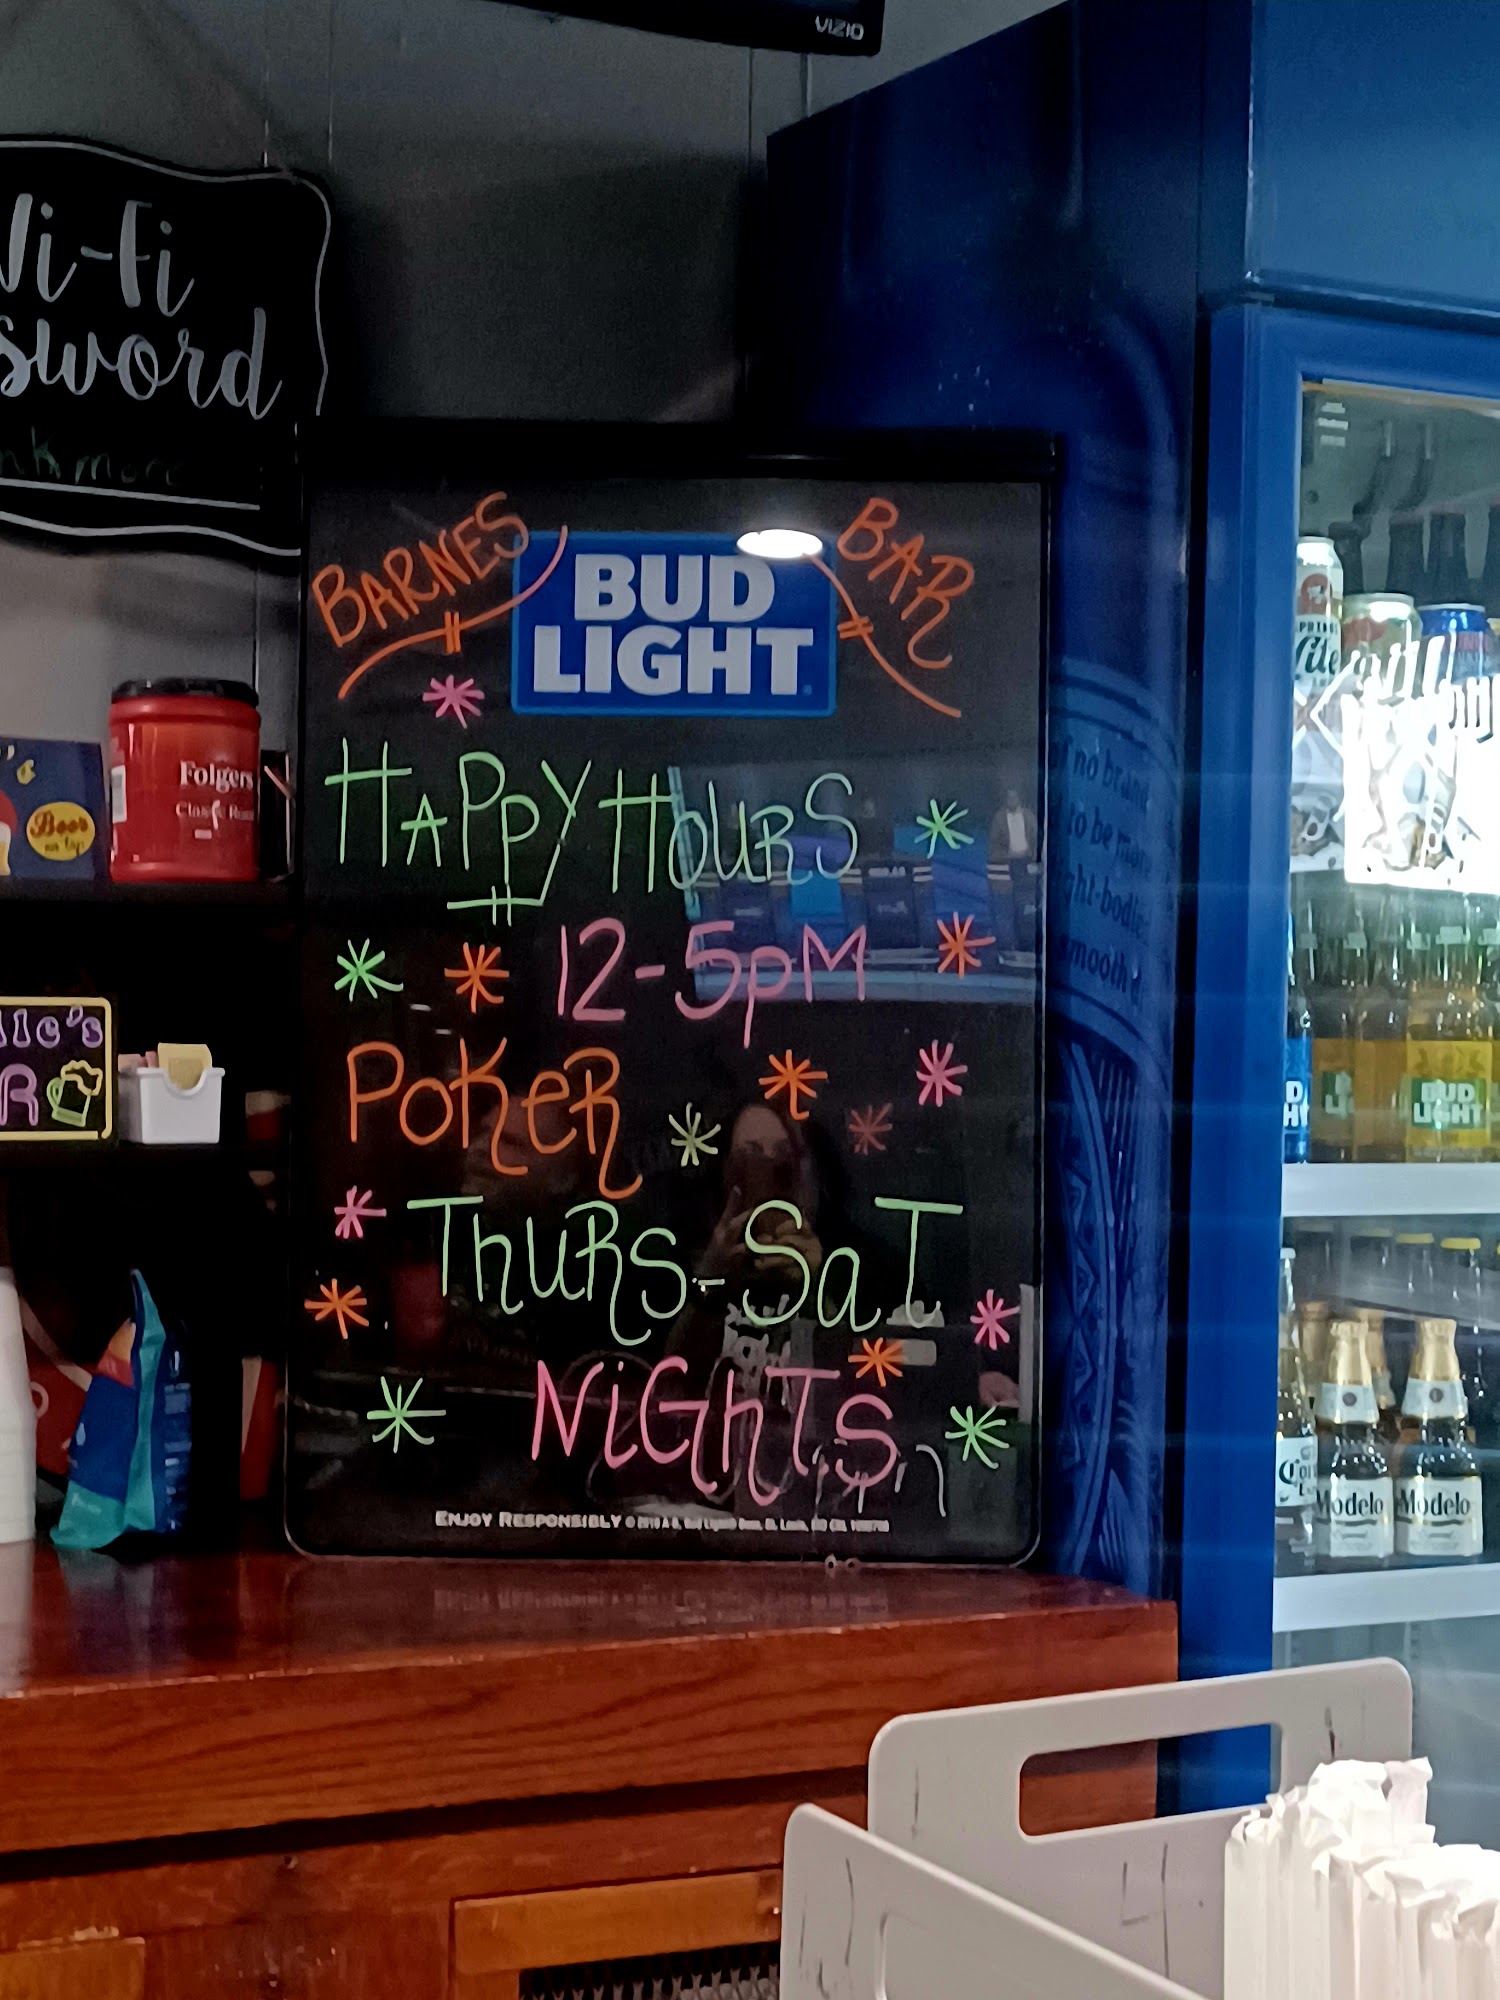 VIZIO
Wi-Fi
BARNES
BAR
BUD
LIGHT
HAPPY HOURS
12-5PM
POKER
THURS-SAT
NIGHTS
ENJOY RESPONSIBLY
Folgers
Beer
on tap
no brand
to be
smooth
BUD
LIGHT
Modelo
Modelo